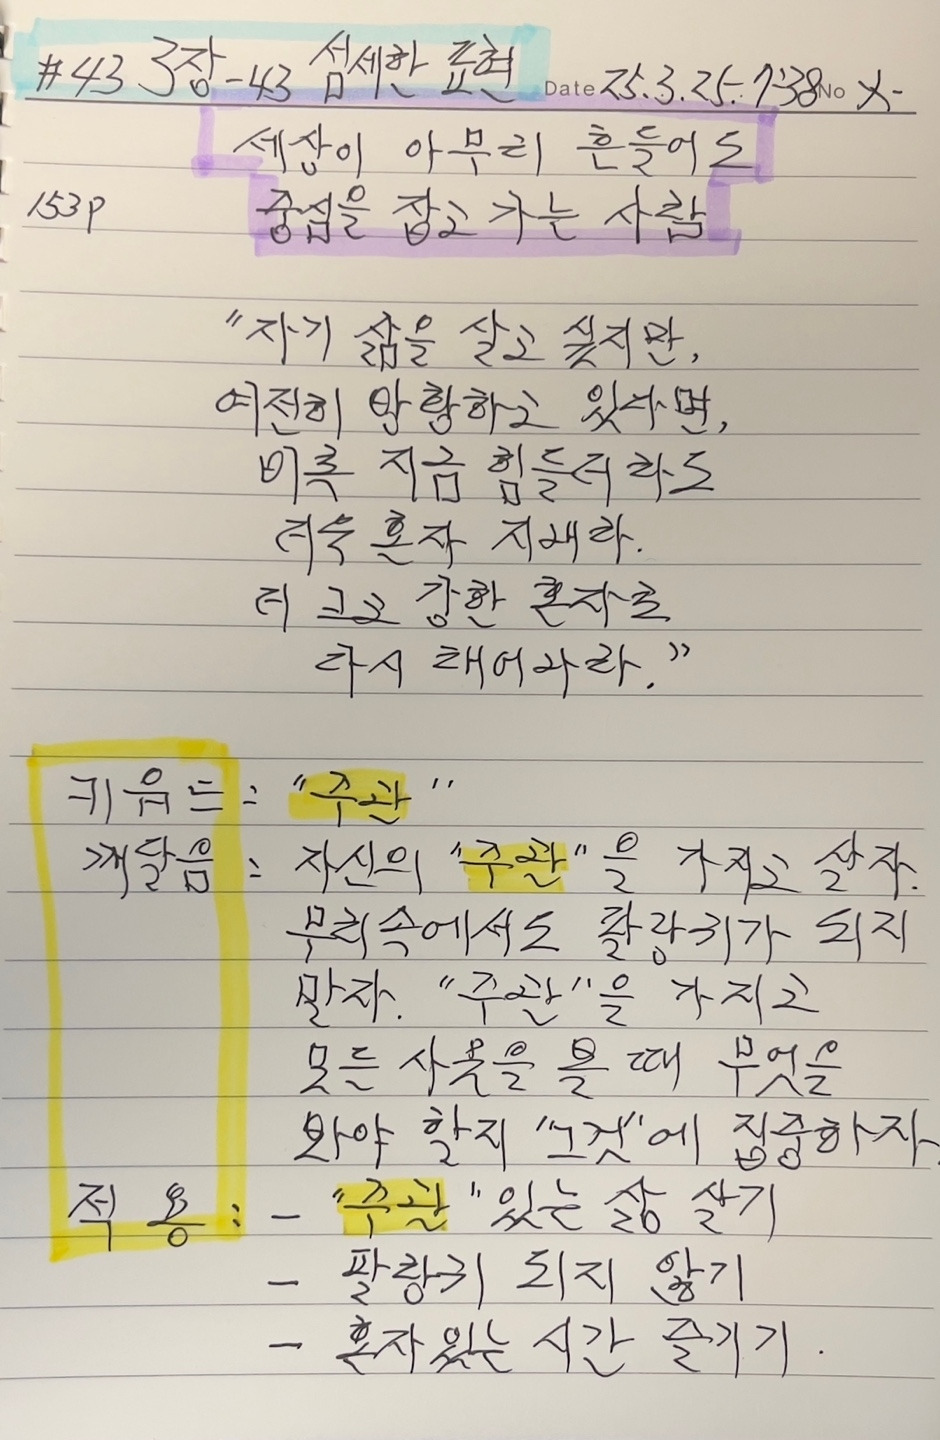 #43 3장-43 섬세한 표현 Date 25.3.25. 7:38 No
세상이 아무리 흔들어도
153p 중심을 잡고 가는 사람
"자기 삶을 살고 싶지만,
여전히 방황하고 있다면,
비록 지금 힘들더라도
더욱 혼자 지내라.
더 크고 강한 혼자로
다시 태어나라."
키워드 : "주관"
깨달음 : 자신의 "주관"을 가지고 살자.
무리속에서도 팔랑귀가 되지
말자. "주관"을 가지고
모든 사물을 볼 때 무엇을
봐야 할지 "그것"에 집중하자.
적용 : - "주관"있는 삶 살기
- 팔랑귀 되지 않기
- 혼자있는 시간 즐기기.